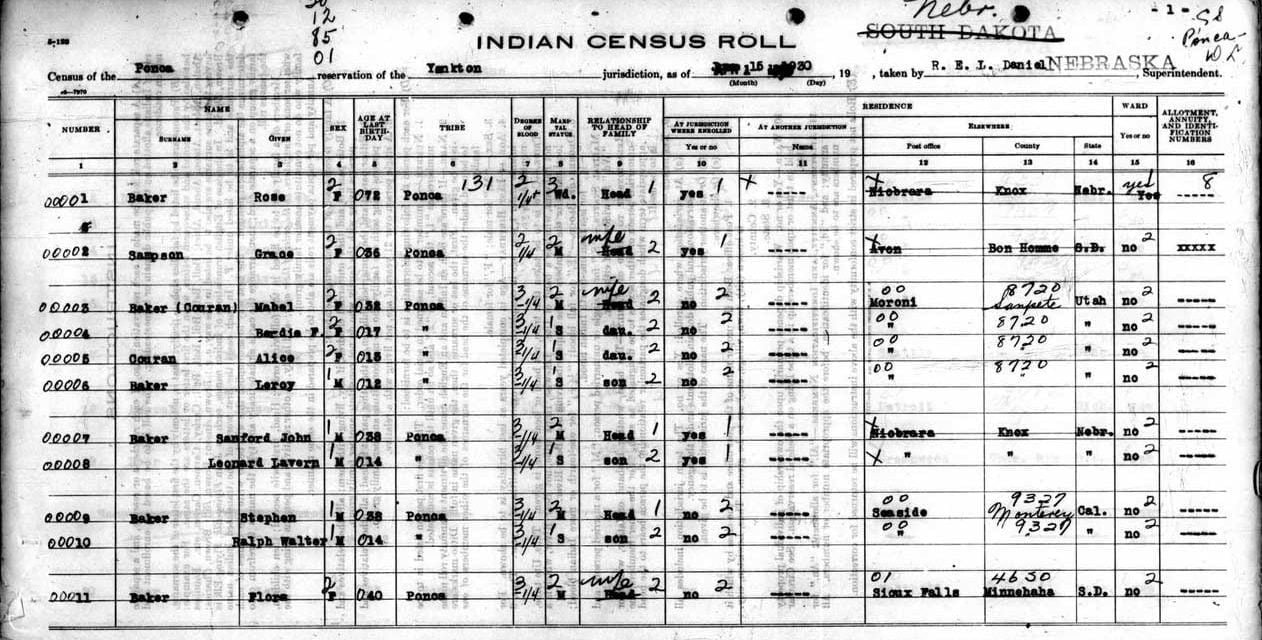 12
85
01
Nebr.
- 1 -
Ponca-
5-128
INDIAN CENSUS ROLL
SOUTH DAKOTA
NEBRASKA
Census of the Ponca reservation of the Yankton jurisdiction, as of 15 1930, 19 , taken by R. E. L. Daniel, Superintendent.
(Month) (Day)
NUMBER NAME SEX AGE AT LAST BIRTHDAY TRIBE DEGREE OF BLOOD MARITAL STATUS RELATIONSHIP TO HEAD OF FAMILY RESIDENCE WARD ALLOTMENT, ANNUITY, AND IDENTIFICATION NUMBERS
SURNAME GIVEN AT JURISDICTION WHERE ENROLLED AT ANOTHER JURISDICTION ELSEWHERE Yes or no
Yes or no Name Post office County State
1 2 3 4 5 6 7 8 9 10 11 12 13 14 15 16
131 yes 8
00001 Baker Rose 2 F 072 Ponca 2 1/4+ 3 Wd. Head 1 yes 1 X ----- X Niobrara Knox Nebr. Yes -----
00002 Sampson Grace 2 F 036 Ponca 2 1/4 2 M wife Head 2 yes 1 ----- X Avon Bon Homme S.D. no 2 xxxxx
00 8720
00003 Baker (Couran) Mabel 2 F 038 Ponca 3 -1/4 2 M wife Head 2 no 2 ----- Moroni Sanpete Utah no 2 -----
00 8720
00004 Bardia F. 2 F 017 " 3 -1/4 1 S dau. 2 no 2 ----- " " no 2 -----
00 8720
00005 Couran Alice 2 F 015 " 3 -1/4 1 S dau. 2 no 2 ----- " " " no 2 -----
00 8720
00006 Baker Leroy 1 M 012 " 3 -1/4 1 S son 2 no 2 ----- " " no 2 -----
00007 Baker Sanford John 1 M 038 Ponca 3 -1/4 2 M Head 1 yes 1 ----- X Niobrara Knox Nebr. no 2 -----
00008 Leonard Lavern 1 M 014 " 3 -1/4 1 S son 2 yes 1 ----- X " " " no 2 -----
00 9327
00009 Baker Stephen 1 M 038 Ponca 3 -1/4 2 M Head 1 no 2 ----- Seaside Monterey Cal. no 2 -----
00 9327
00010 Ralph Walter 1 M 014 " 3 -1/4 1 S son 2 no 2 ----- " " no 2 -----
01 4650
00011 Baker Flora 2 F 040 Ponca 3 -1/4 2 M wife Head 2 no 2 ----- Sioux Falls Minnehaha S.D. no 2 -----